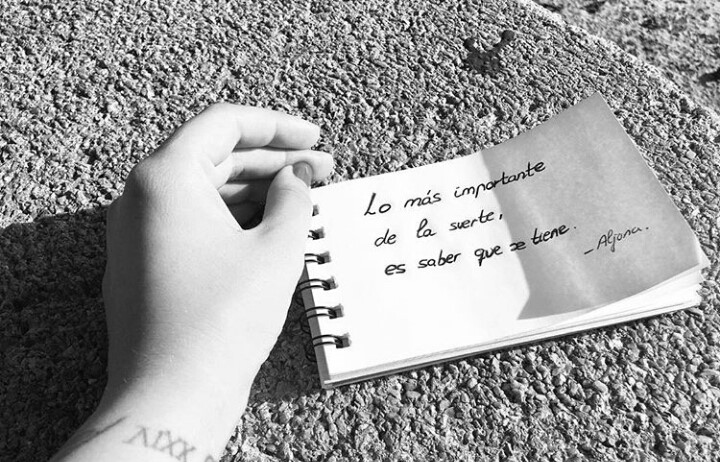 Lo más importante
de la suerte,
es saber que se tiene.
- Aljona.